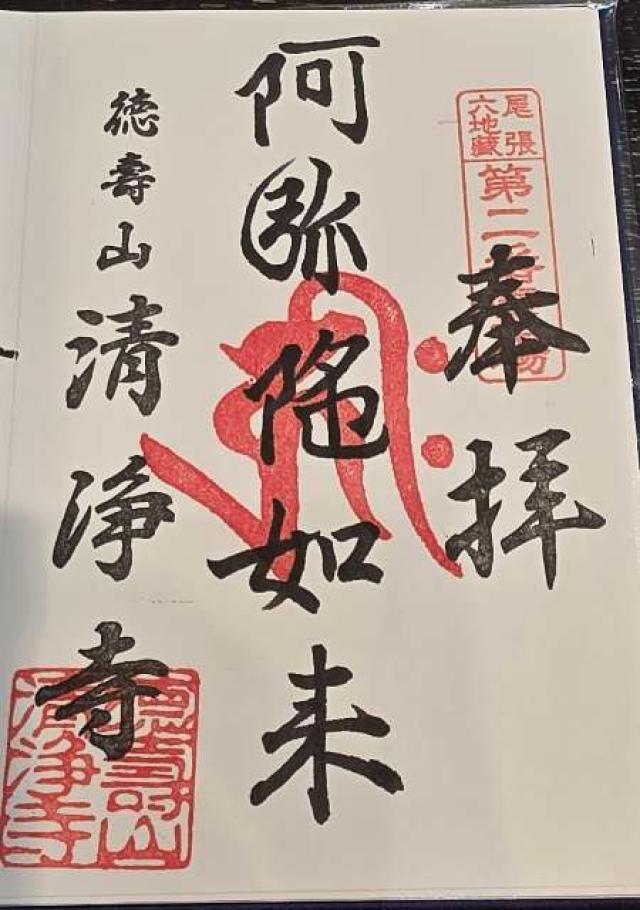 尾張
六地藏
第二番
奉拝
阿弥陀如来
徳壽山清浄寺
徳壽山
清浄寺